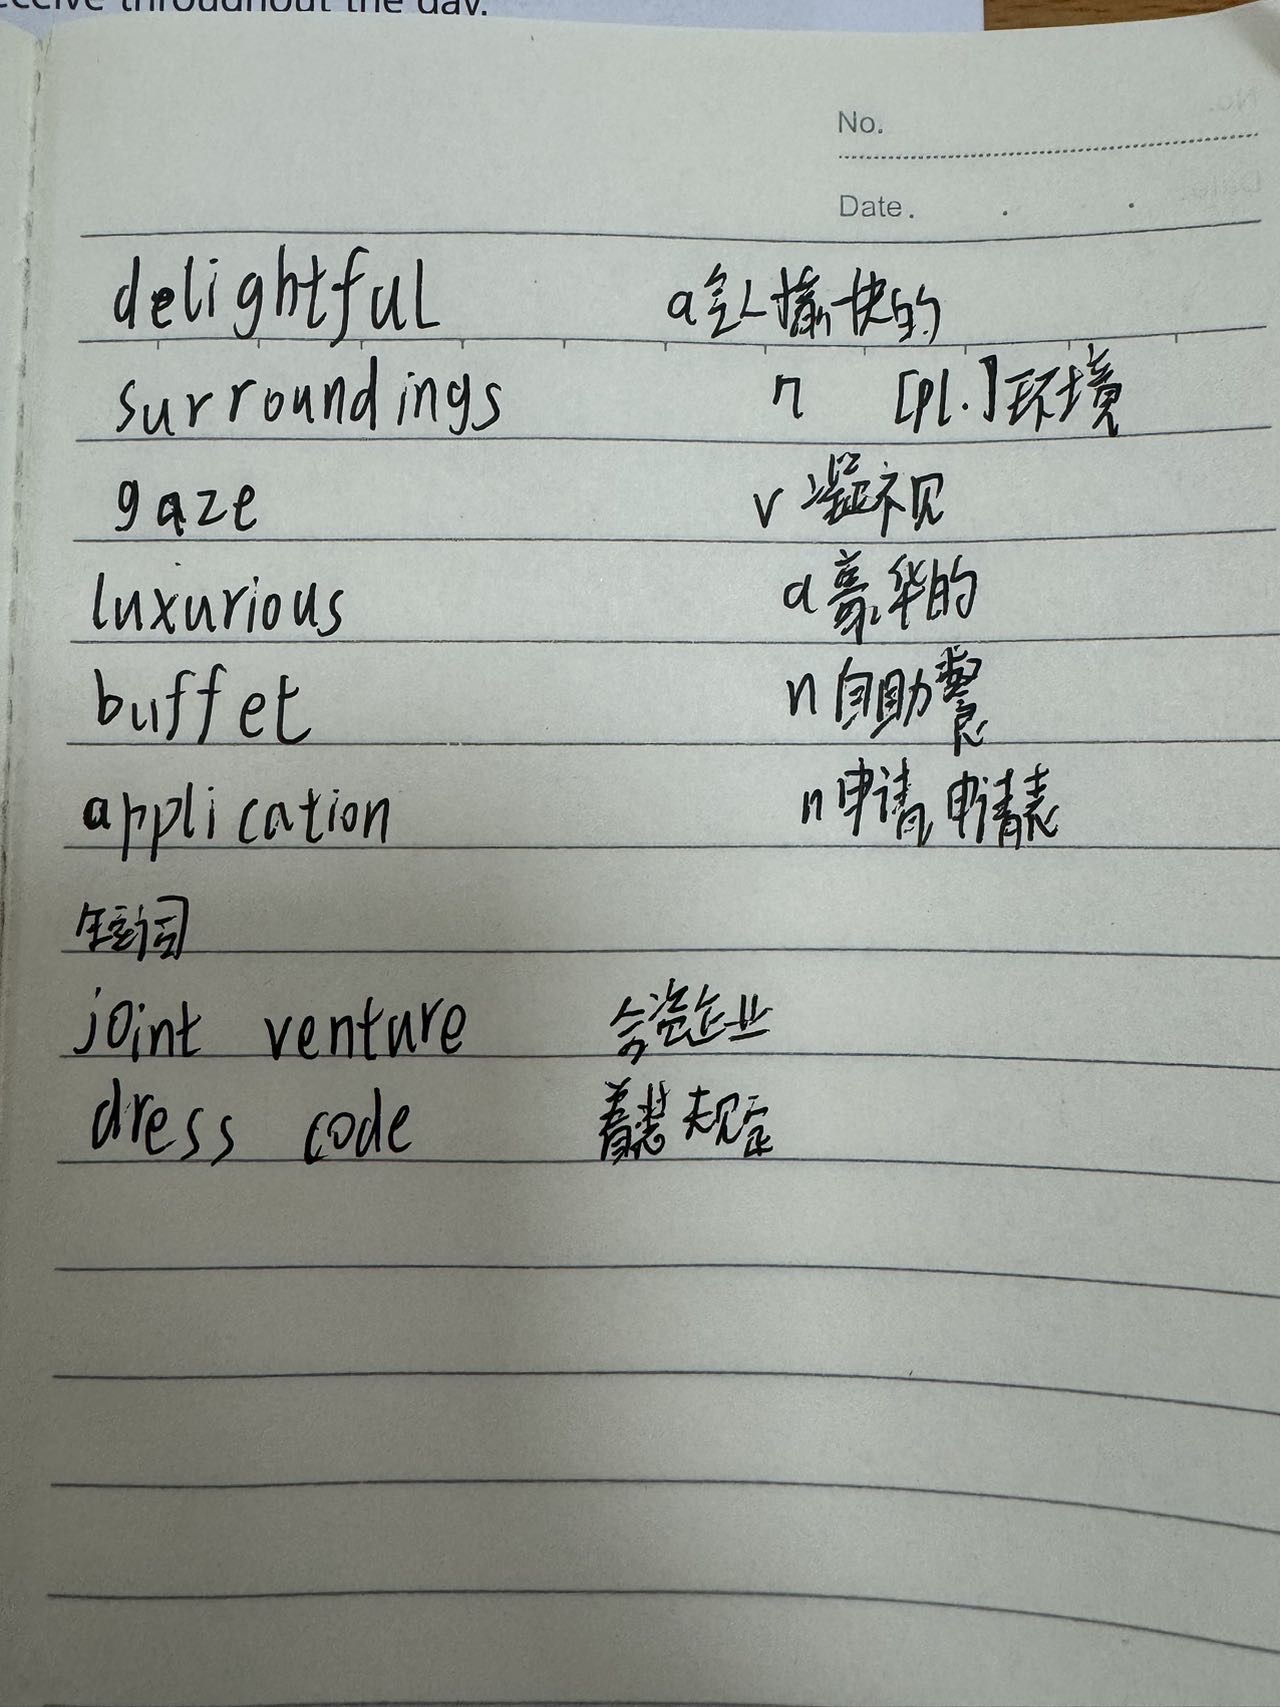 receive throughout the day.
No.
Date.
delightful a令人愉快的
surroundings n [pl.]环境
gaze v 凝视
luxurious a豪华的
buffet n自助餐
application n申请,申请表
生词
joint venture 合资企业
dress code 着装规定